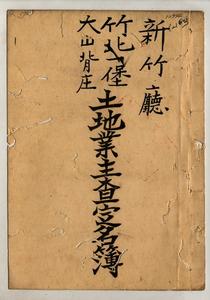 新竹廳
竹北一堡
大山背庄
土地業主查定名簿